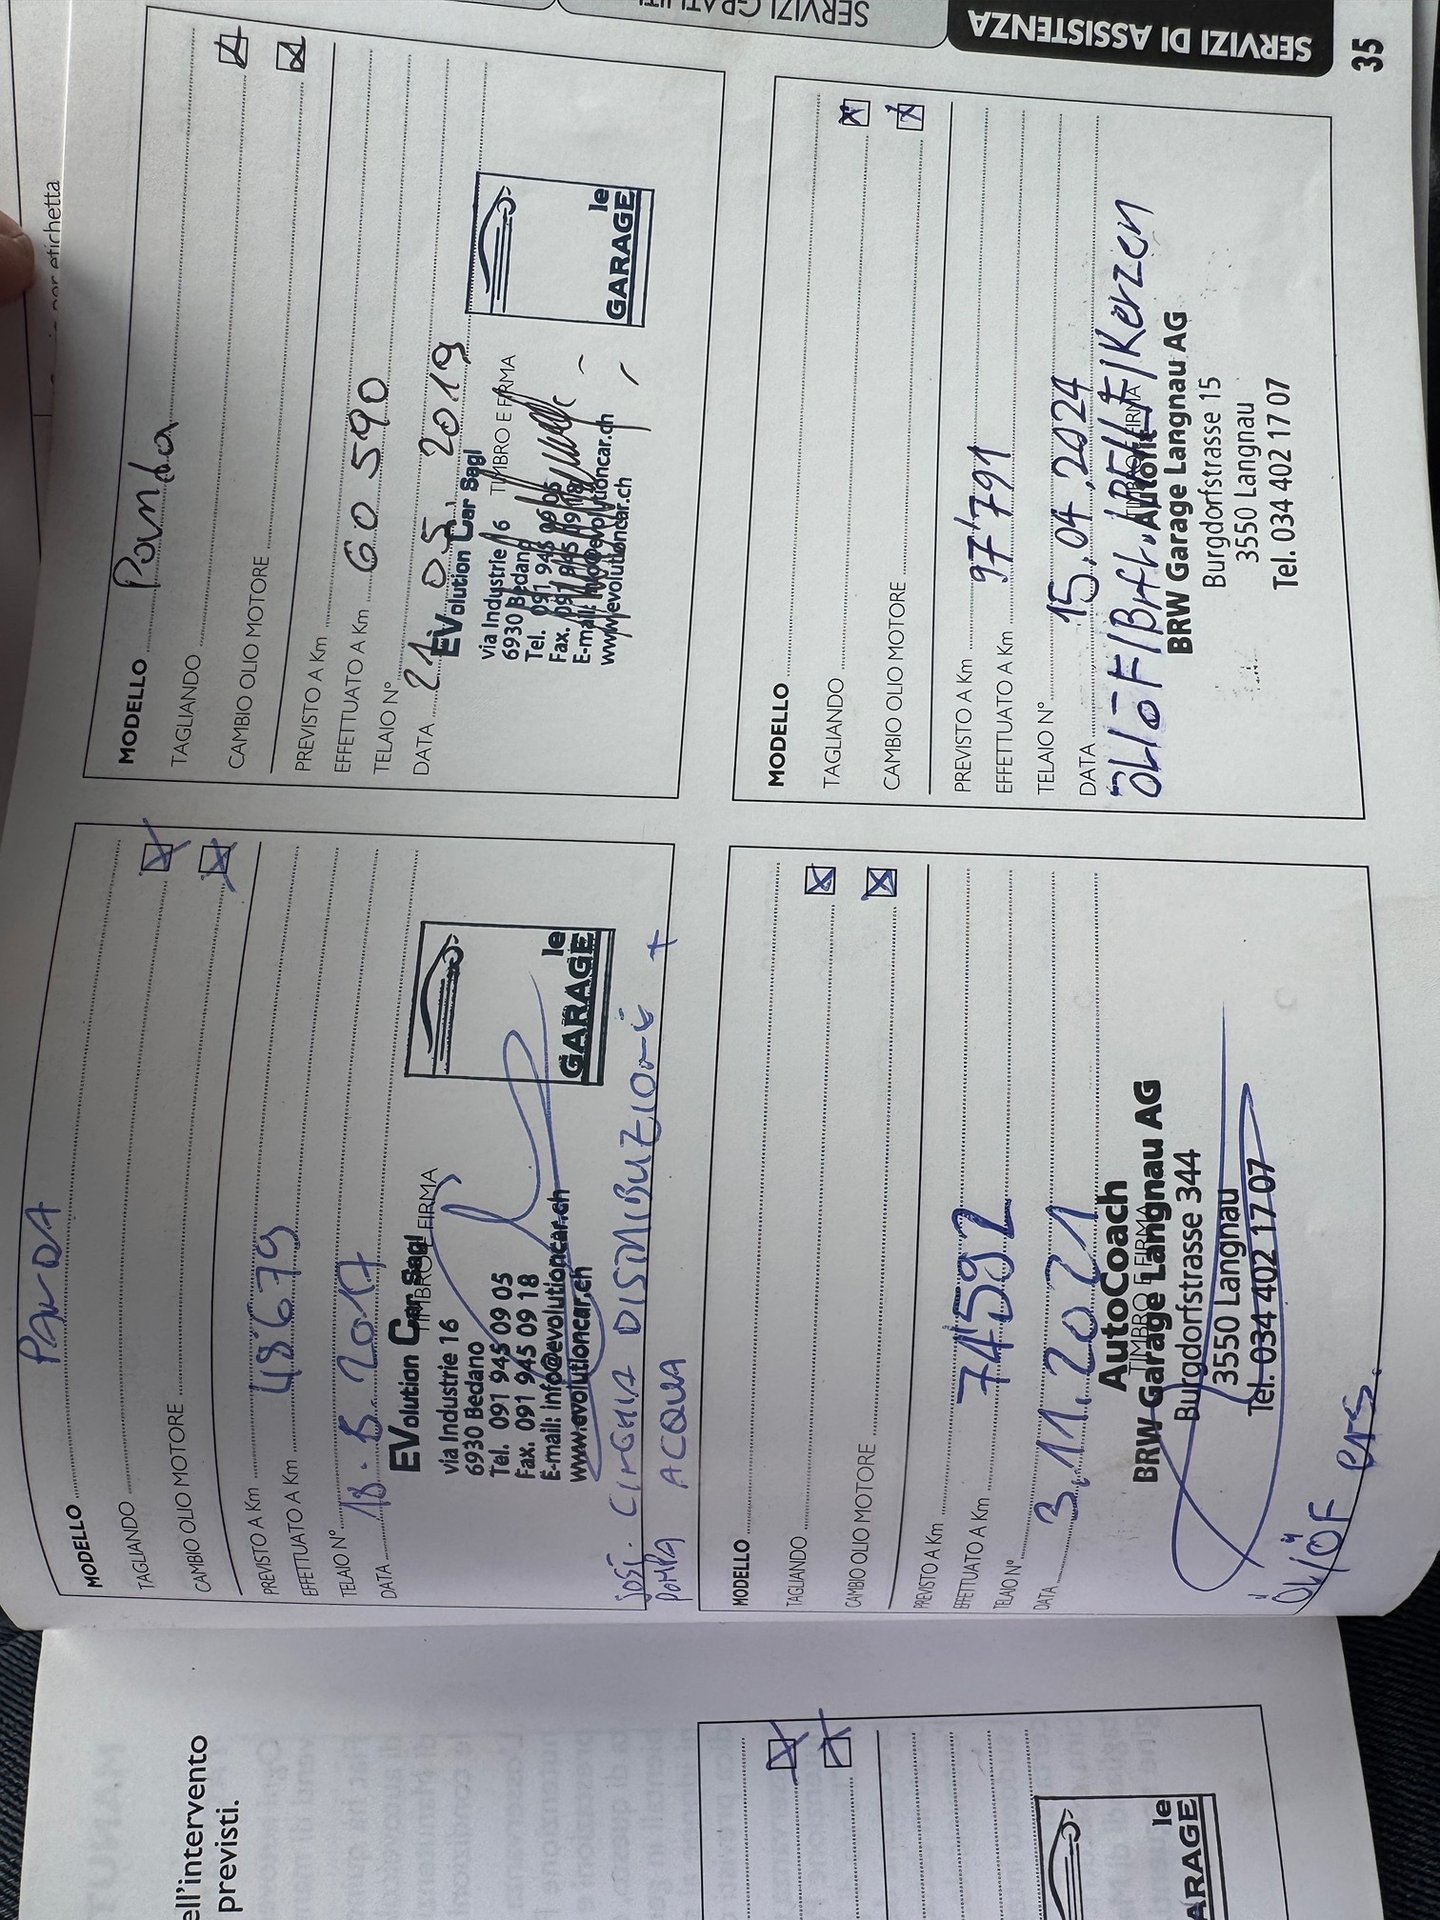 ell'intervento
previsti.
le
GARAGE
MODELLO PANDA
TAGLIANDO
CAMBIO OLIO MOTORE
PREVISTO A Km
EFFETTUATO A Km 48679
TELAIO N°
DATA 18.5.2017
TIMBRO E FIRMA
EVolution Car Sagl
via Industrie 16
6930 Bedano
Tel. 091 945 09 05
Fax. 091 945 09 18
E-mail: info@evolutioncar.ch
www.evolutioncar.ch
le
GARAGE
SOST. CINGHIA DISTRIBUZIONE +
POMPA ACQUA
MODELLO Panda
TAGLIANDO
CAMBIO OLIO MOTORE
PREVISTO A Km
EFFETTUATO A Km 60 590
TELAIO N°
DATA 21.05.2019
TIMBRO E FIRMA
EVolution Car Sagl
via Industrie 16
6930 Bedano
Tel. 091 945 09 05
Fax. 091 945 09 18
E-mail: info@evolutioncar.ch
www.evolutioncar.ch
le
GARAGE
MODELLO
TAGLIANDO
CAMBIO OLIO MOTORE
PREVISTO A Km
EFFETTUATO A Km 74592
TELAIO N°
DATA 3.11.2021
TIMBRO E FIRMA
AutoCoach
BRW Garage Langnau AG
Burgdorfstrasse 344
3550 Langnau
Tel. 034 402 17 07
Öl/ÖF
MODELLO
TAGLIANDO
CAMBIO OLIO MOTORE
PREVISTO A Km
EFFETTUATO A Km 97'791
TELAIO N°
DATA 15.04.2024
ÖL/ÖF/Brfl./PFI/LF/Kerzen
TIMBRO E FIRMA
BRW Garage Langnau AG
Burgdorfstrasse 15
3550 Langnau
Tel. 034 402 17 07
per etichetta
SERVIZI GRATUITI
SERVIZI DI ASSISTENZA
35